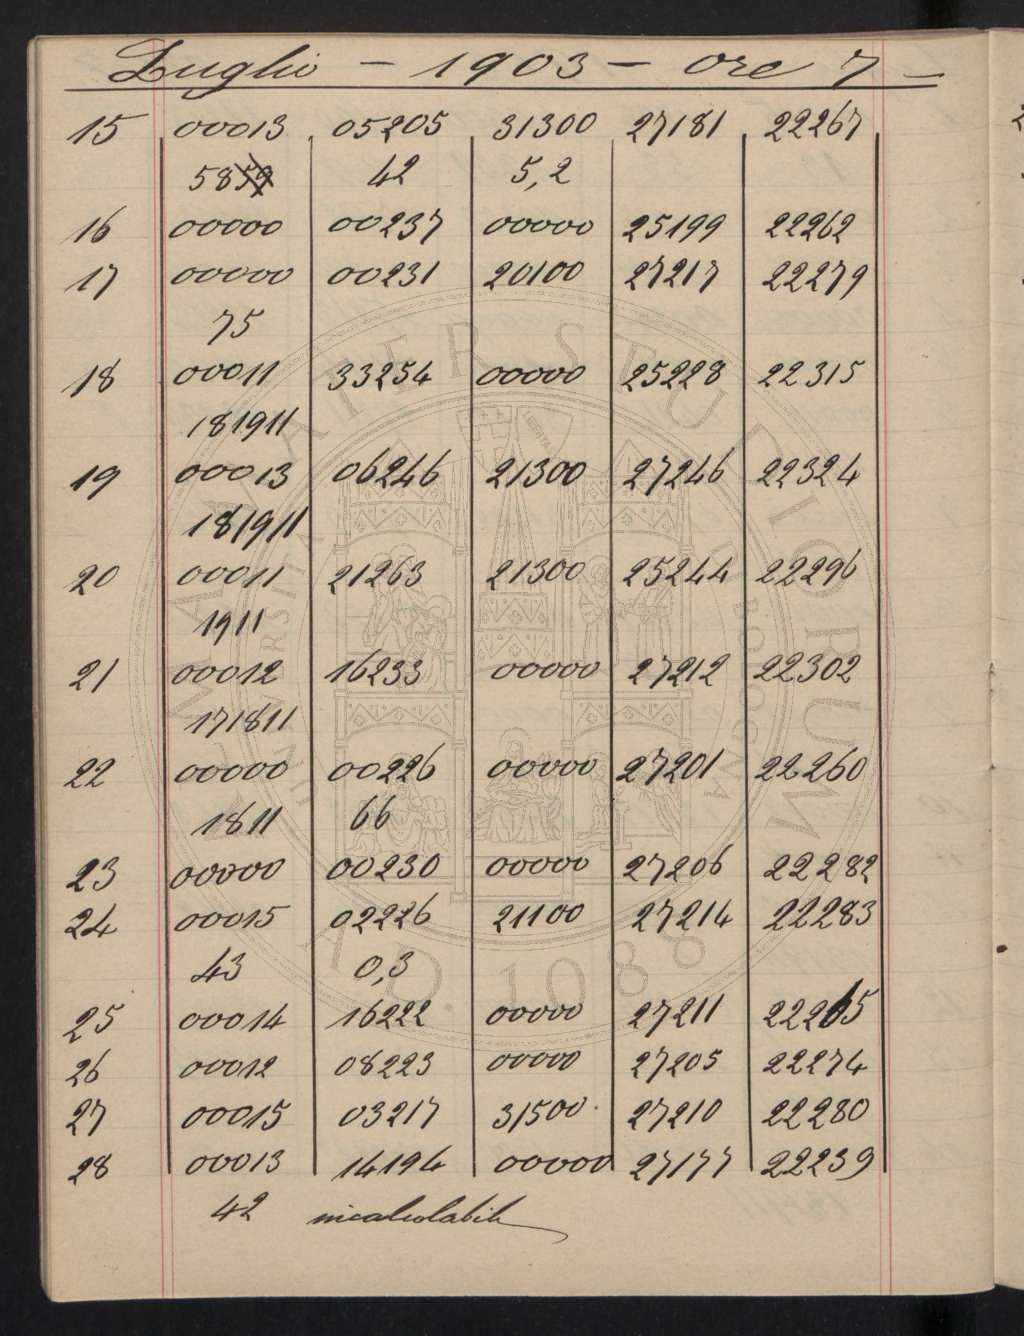 Luglio - 1903 - ore 7 -
15 00013 05205 31300 27181 22267
58 42 5,2
16 00000 00237 00000 25199 22262
17 00000 00231 20100 27217 22279
75
18 00011 33254 00000 25228 22315
181911
19 00013 06246 21300 27246 22324
181911
20 00011 21263 21300 25244 22296
1911
21 00012 16233 00000 27212 22302
171811
22 00000 00226 00000 27201 22260
1811 66
23 00000 00230 00000 27206 22282
24 00015 02226 21100 27214 22283
43 0,3
25 00014 16222 00000 27211 22265
26 00012 08223 00000 27205 22274
27 00015 03217 31500 27210 22280
28 00013 14194 00000 27177 22239
42 incalcolabile
ALMA MATER STUDIORUM
A.D. 1088